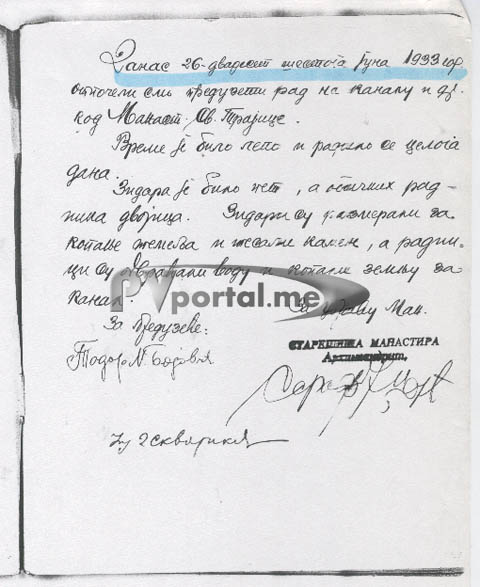 Данас 26-двадесет шестога јуна 1933 год
отпочели смо предузети рад на каналу и др.
код Манаст. Св. Тројице.
Време је било лепо и радило се целога
дана.
Зидара је било пет, а обичних рад-
ника двојица. Зидари су
копање темеља и тесали камен, а радни-
ци су одвраћали воду и копали земљу за
канал.
За управу Ман.
За предузеће:
СТАРЕШИНА МАНАСТИРА
Архимандрит,
Тодор
PV portal.me